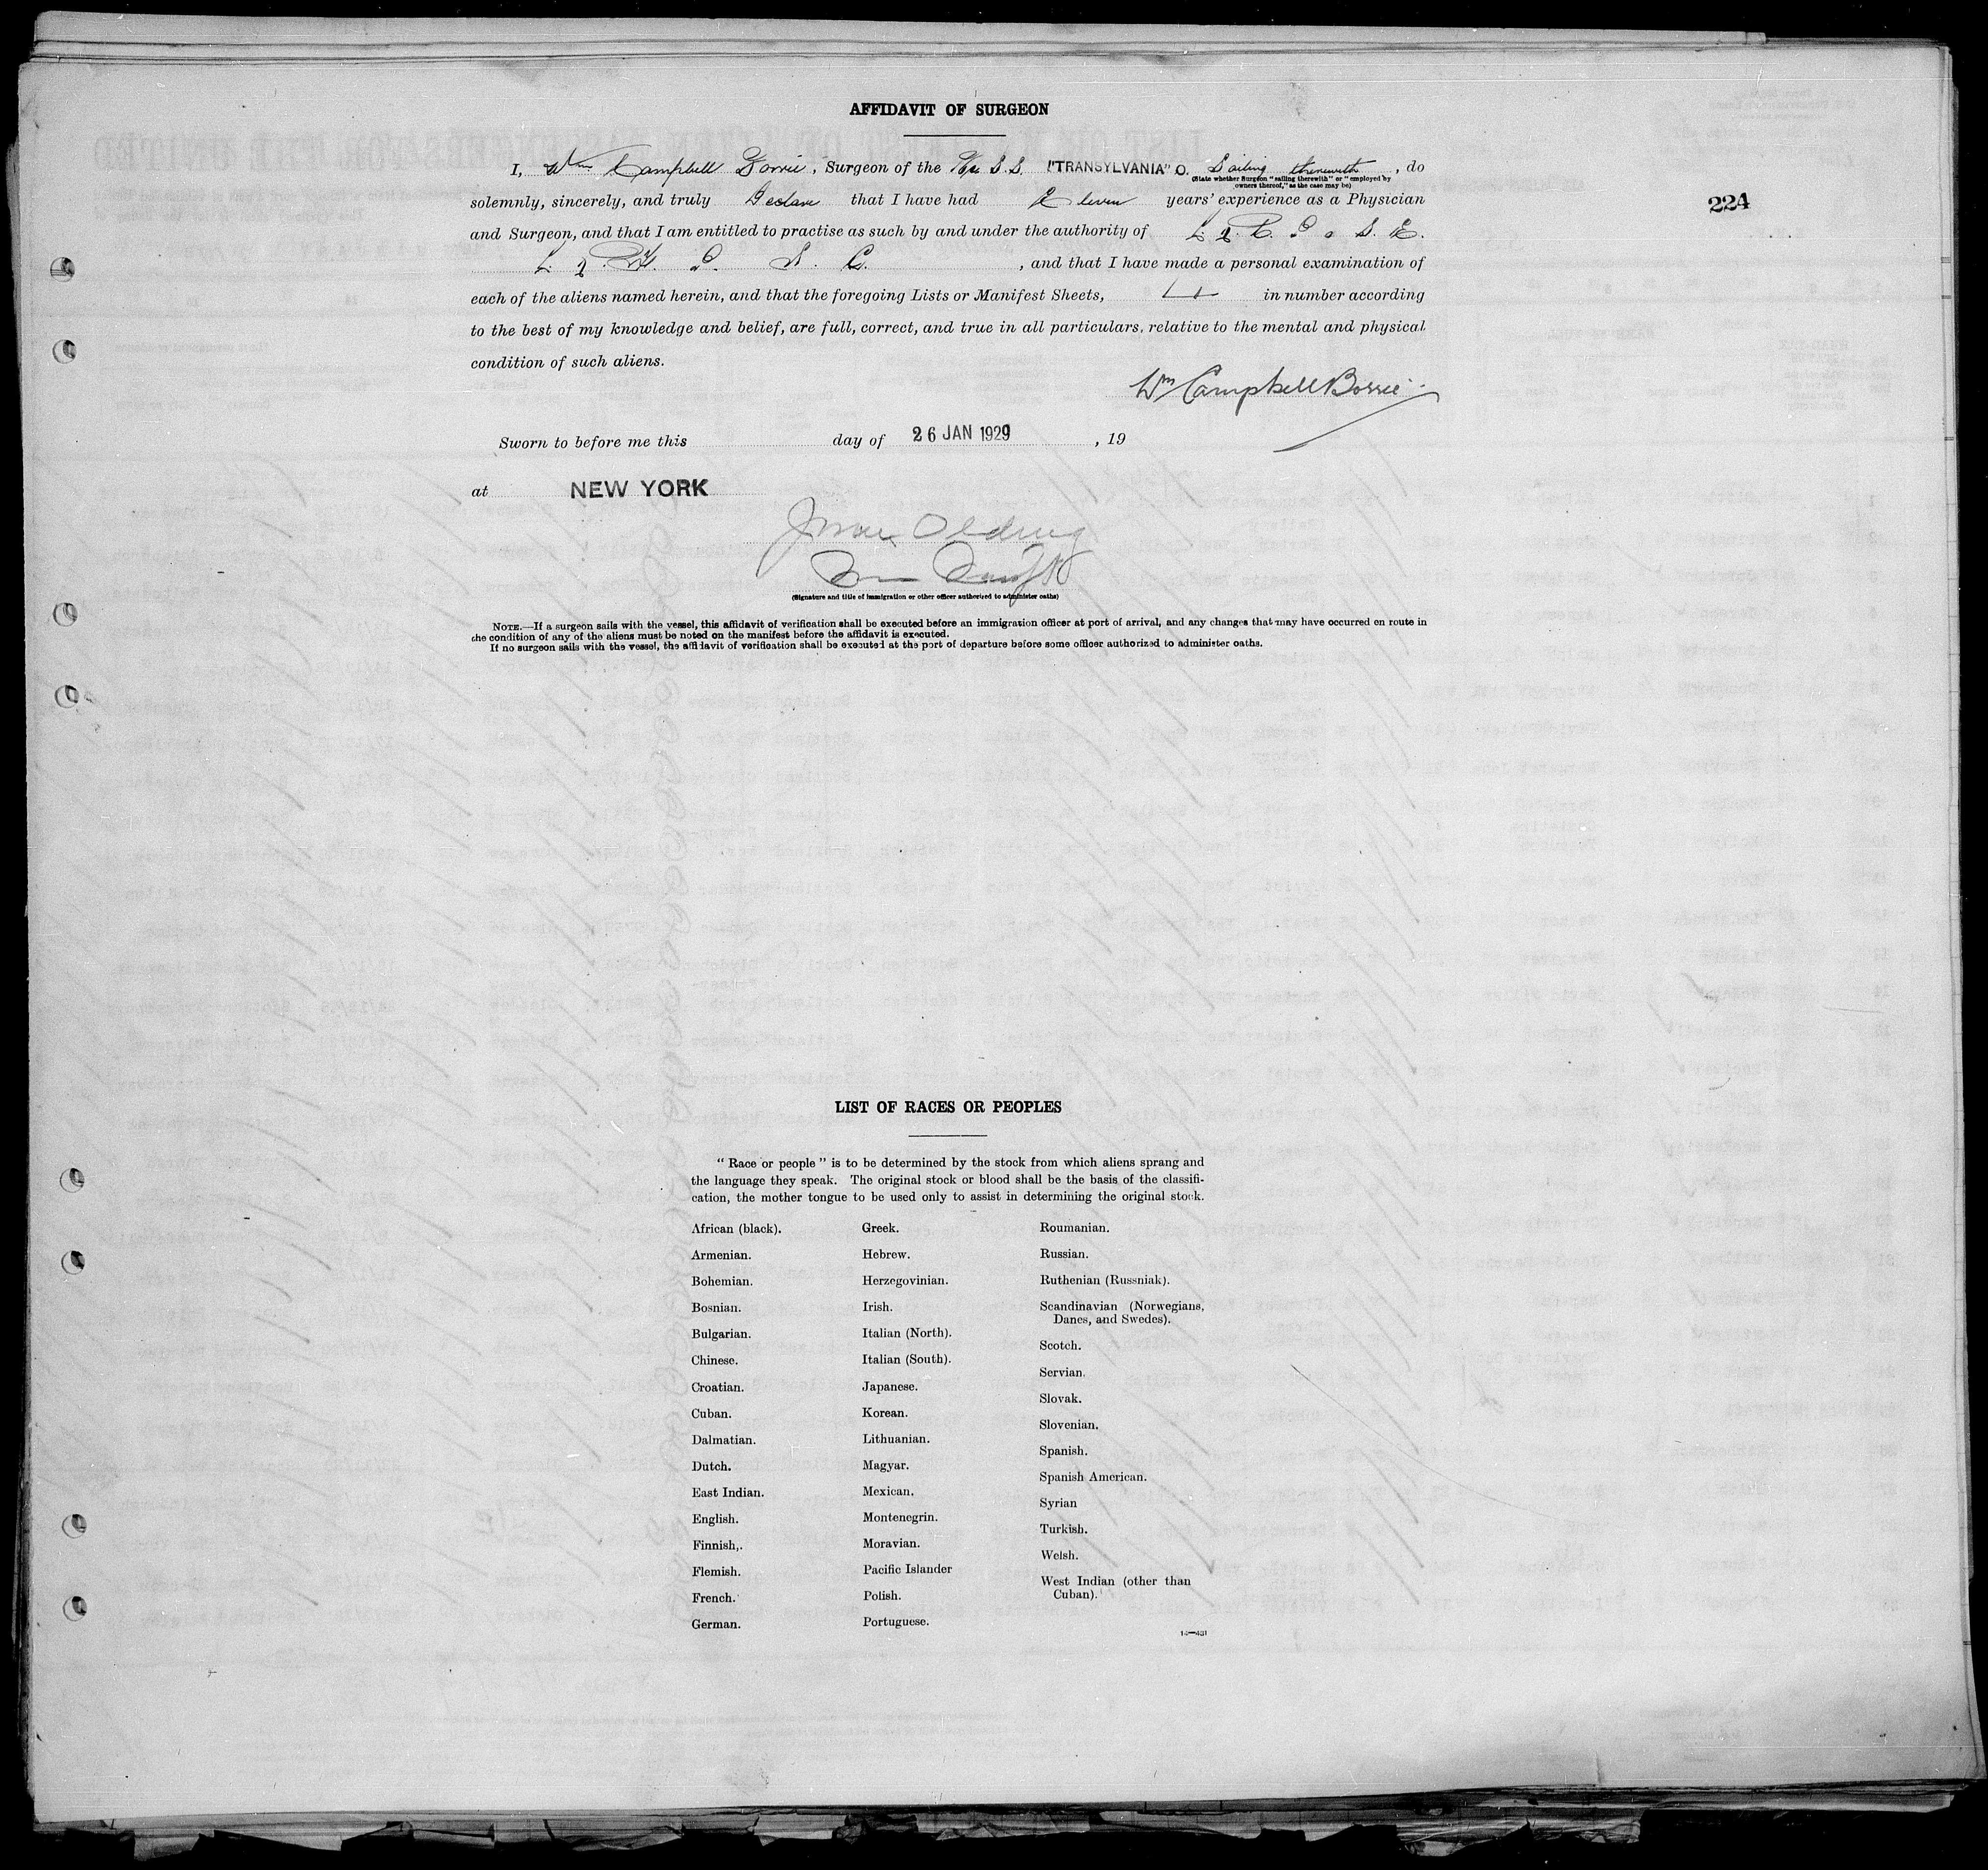 AFFIDAVIT OF SURGEON
I, Wm Campbell Borrie, Surgeon of the S.S. "TRANSYLVANIA" Sailing therewith, do
(State whether Surgeon "sailing therewith" or "employed by
owners thereof," as the case may be)
224
solemnly, sincerely, and truly declare that I have had Eleven years' experience as a Physician
and Surgeon, and that I am entitled to practise as such by and under the authority of
, and that I have made a personal examination of
each of the aliens named herein, and that the foregoing Lists or Manifest Sheets, in number according
to the best of my knowledge and belief, are full, correct, and true in all particulars, relative to the mental and physical
condition of such aliens.
Wm Campbell Borrie
Sworn to before me this day of 26 JAN 1929, 19
at NEW YORK
(Signature and title of immigration or other officer authorized to administer oaths)
NOTE.—If a surgeon sails with the vessel, this affidavit of verification shall be executed before an immigration officer at port of arrival, and any changes that may have occurred en route in
the condition of any of the aliens must be noted on the manifest before the affidavit is executed.
If no surgeon sails with the vessel, the affidavit of verification shall be executed at the port of departure before some officer authorized to administer oaths.
LIST OF RACES OR PEOPLES
" Race or people " is to be determined by the stock from which aliens sprang and
the language they speak. The original stock or blood shall be the basis of the classifi-
cation, the mother tongue to be used only to assist in determining the original stock.
African (black).
Armenian.
Bohemian.
Bosnian.
Bulgarian.
Chinese.
Croatian.
Cuban.
Dalmatian.
Dutch.
East Indian.
English.
Finnish,.
Flemish.
French.
German.
Greek.
Hebrew.
Herzegovinian.
Irish.
Italian (North).
Italian (South).
Japanese.
Korean.
Lithuanian.
Magyar.
Mexican.
Montenegrin.
Moravian.
Pacific Islander
Polish.
Portuguese.
Roumanian.
Russian.
Ruthenian (Russniak).
Scandinavian (Norwegians,
Danes, and Swedes).
Scotch.
Servian.
Slovak.
Slovenian.
Spanish.
Spanish American.
Syrian
Turkish.
Welsh.
West Indian (other than
Cuban).
14—431